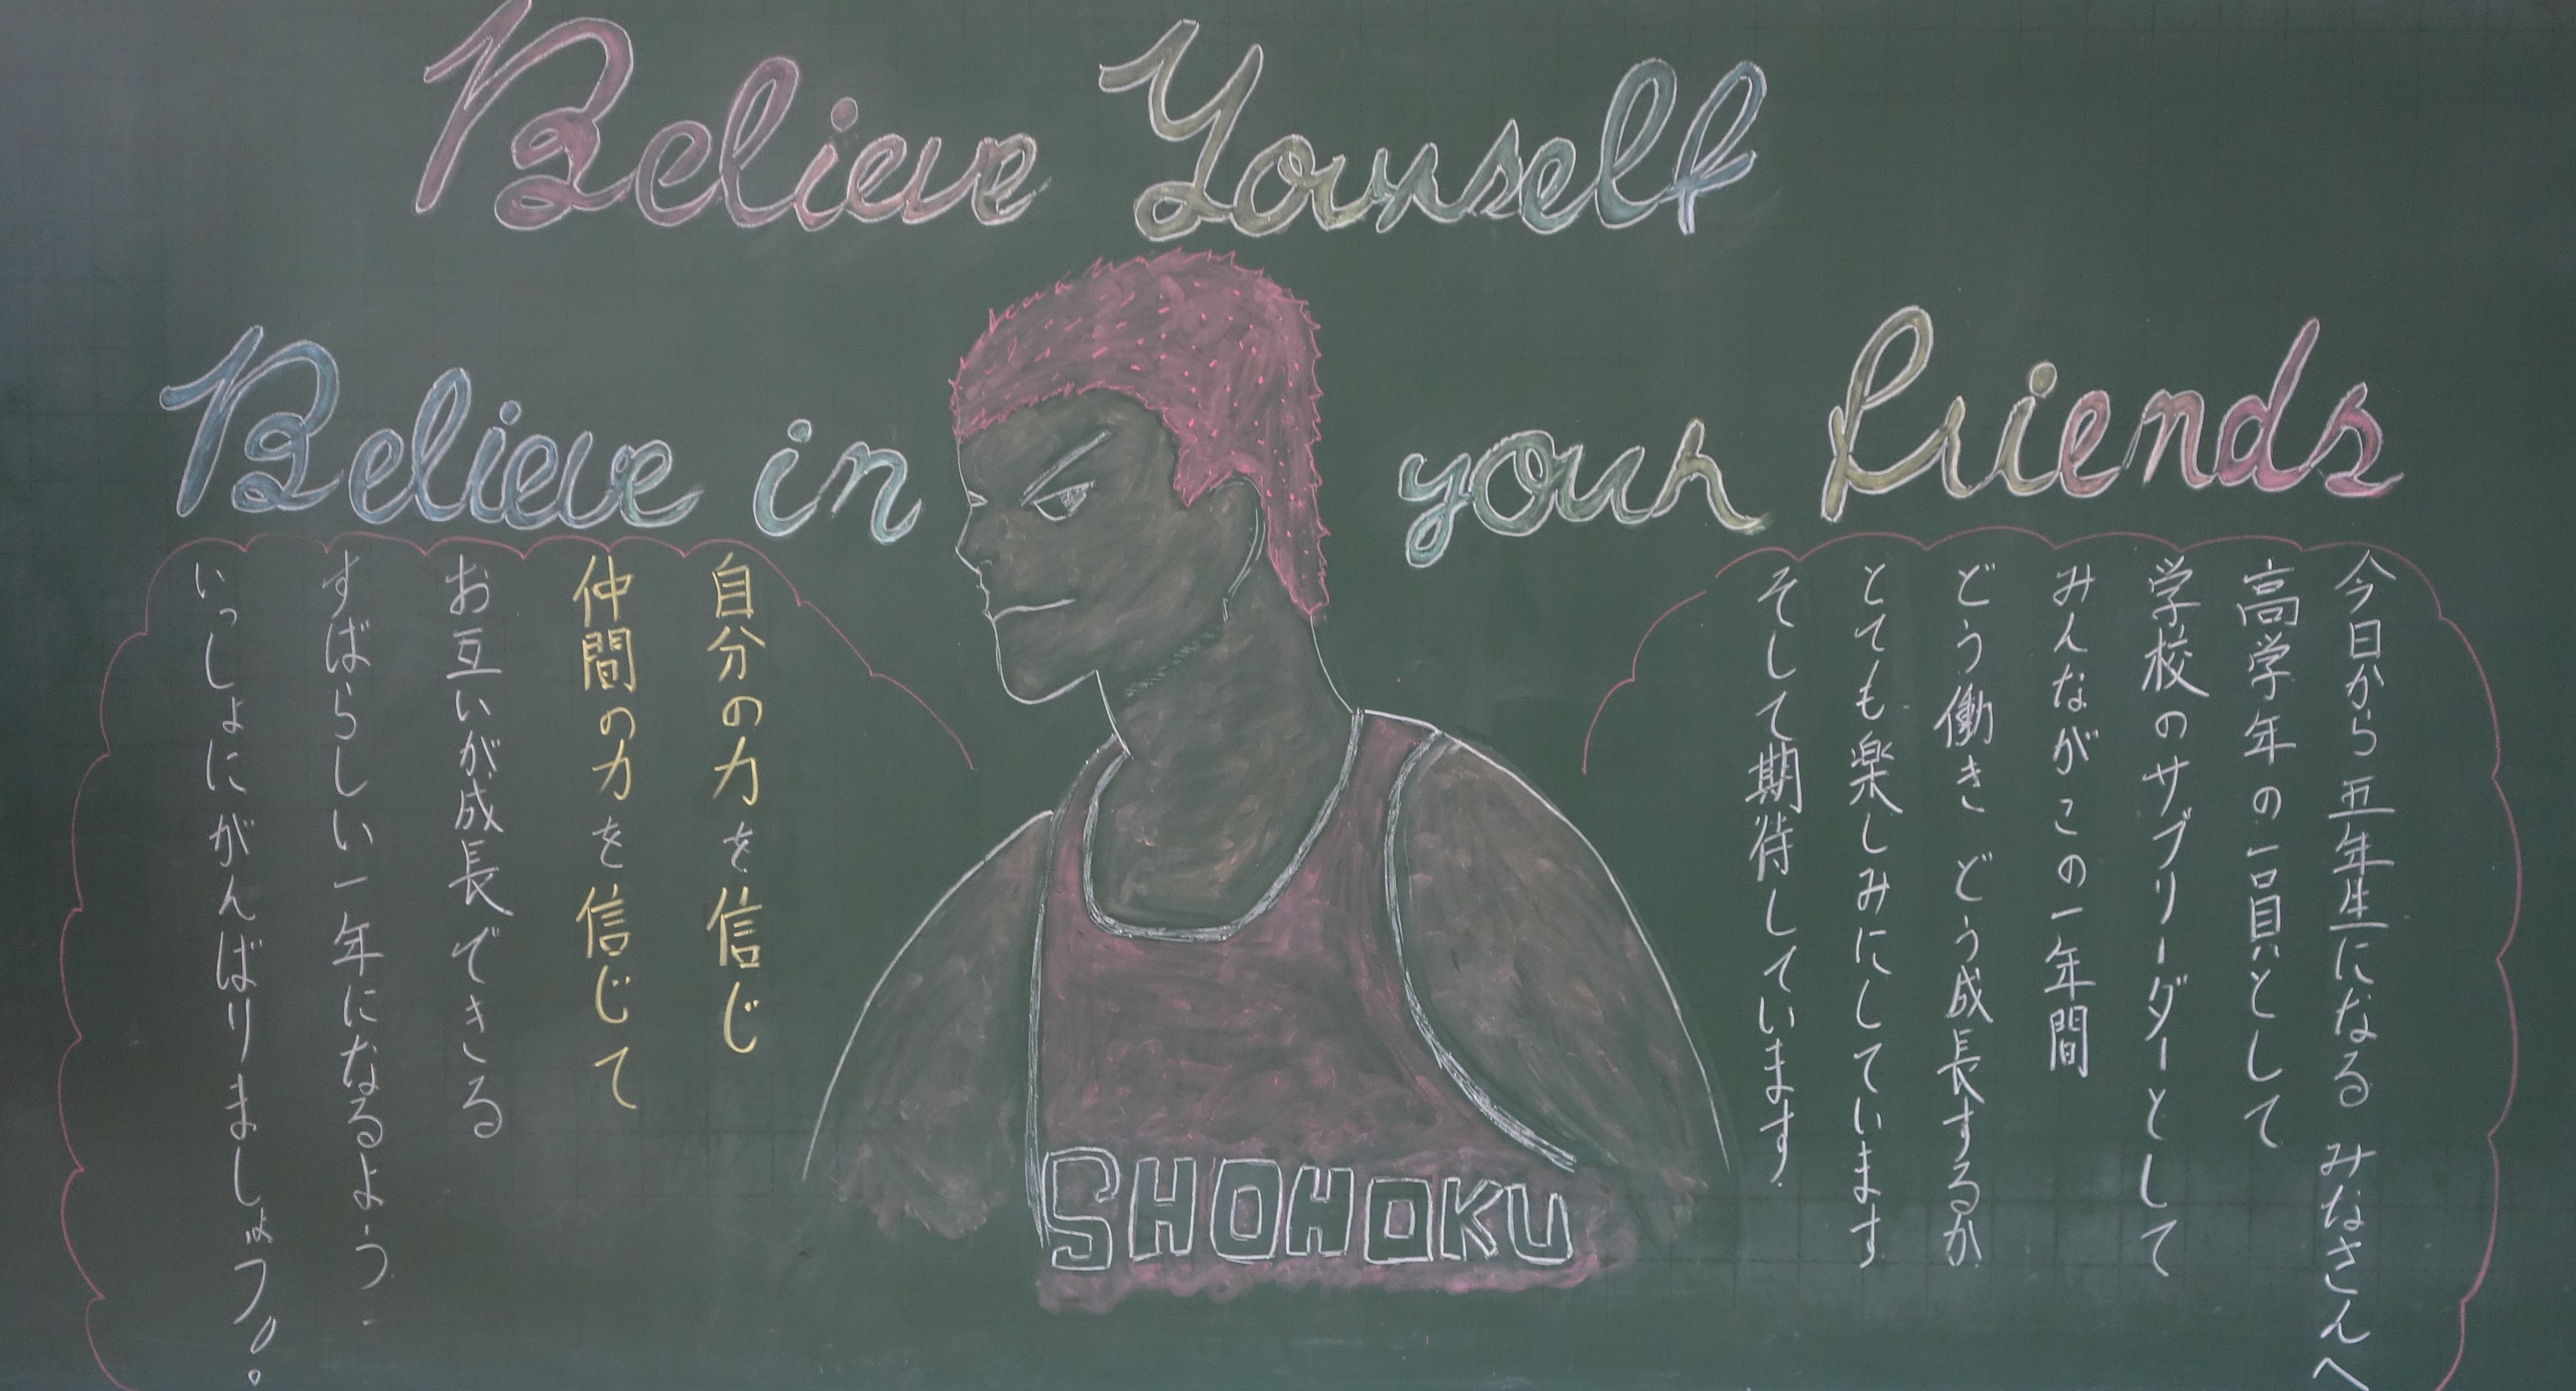 Believe Yourself
Believe in your friends
今日から五年生になる みなさんへ
高学年の一員として
学校のサブリーダーとして
みんながこの一年間
どう働き どう成長するか
とても楽しみにしています
そして期待しています.
自分の力を信じ
仲間の力を信じて
お互いが成長できる
すばらしい一年になるよう..
いっしょにがんばりましょう!。
SHOHOKU